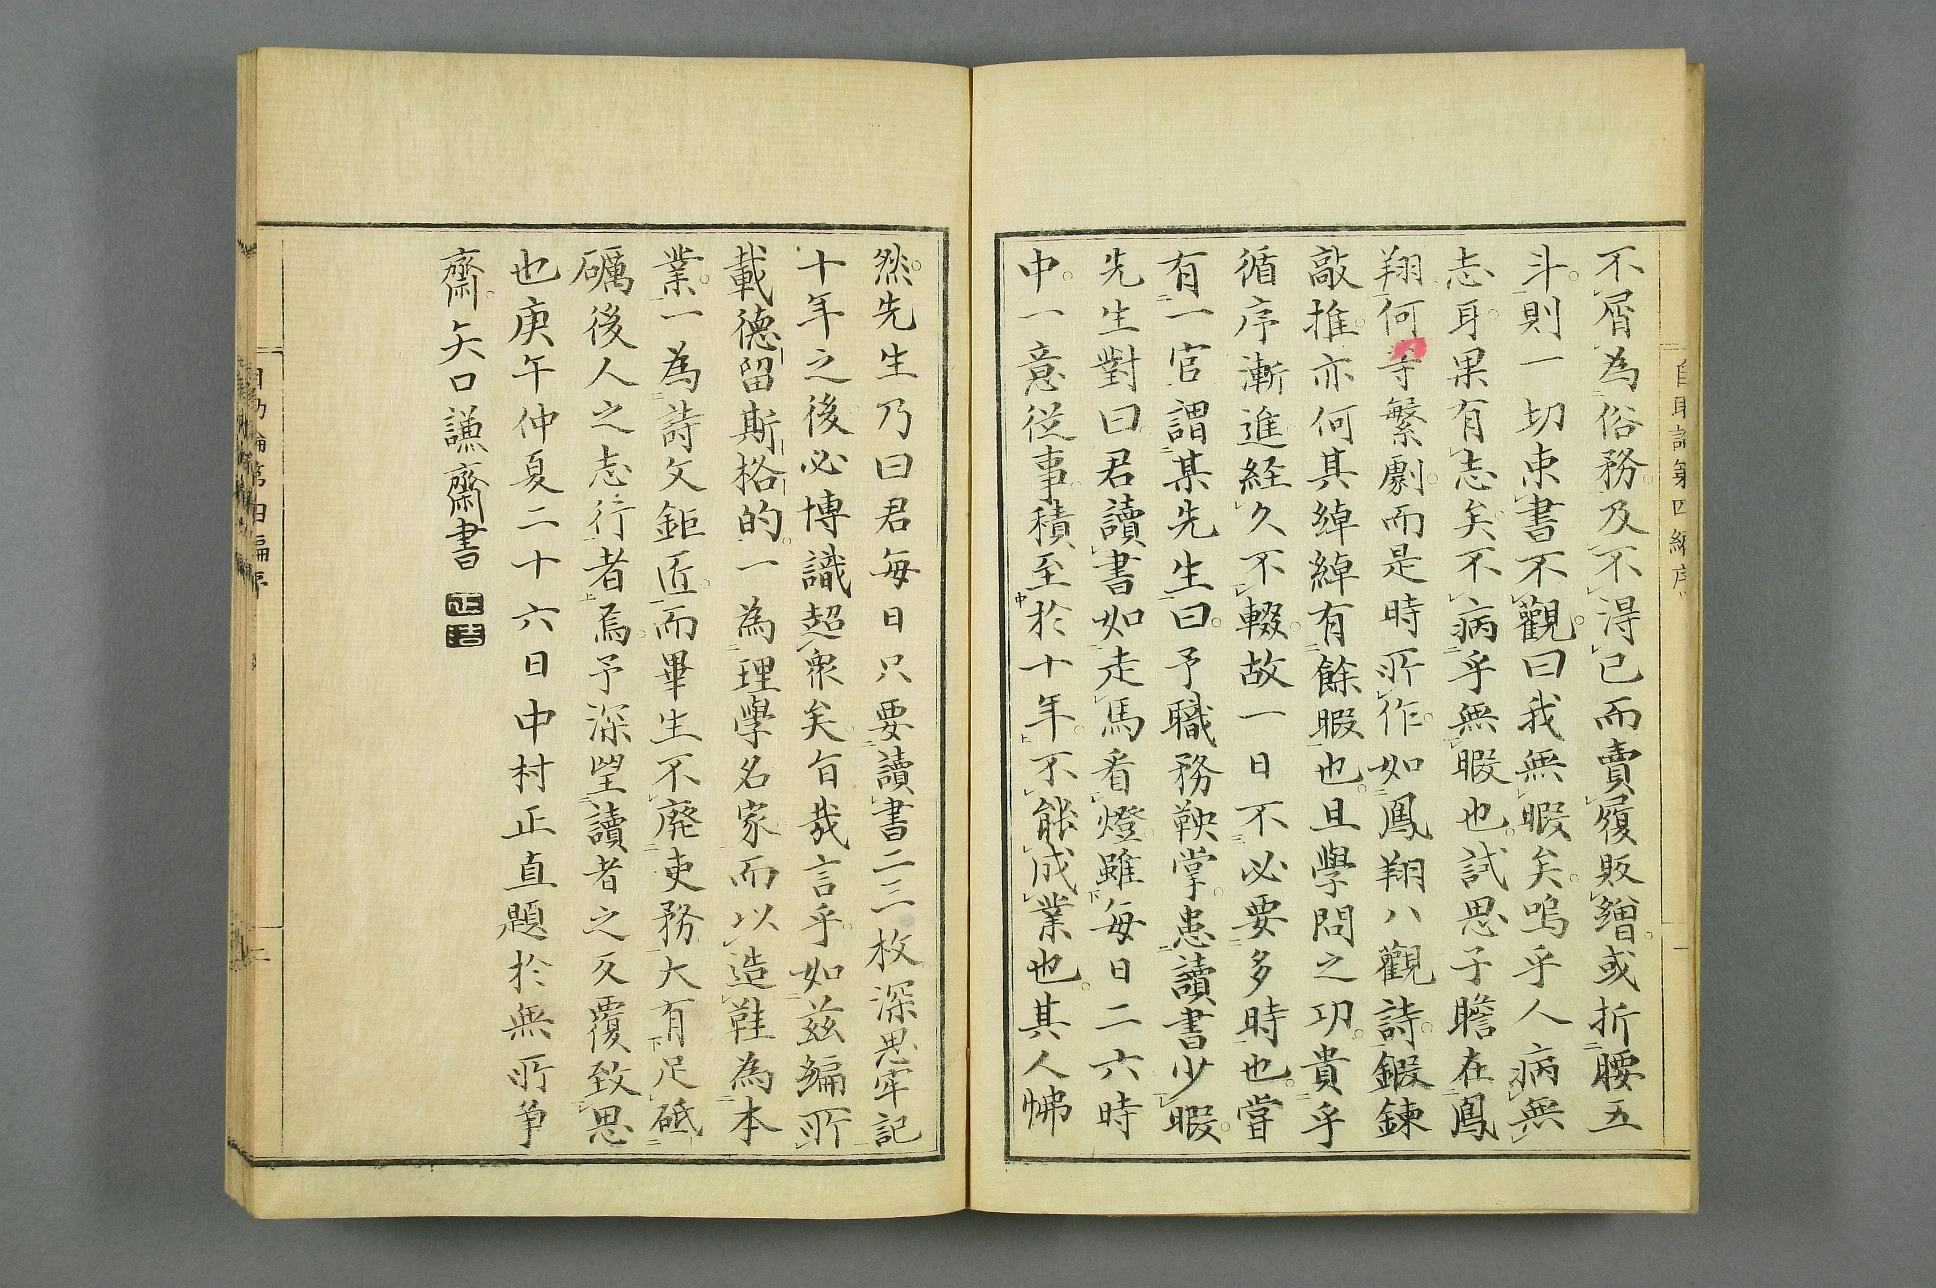 不屑為俗務及不得已而賣履販繒或折腰五
斗則一切束書不觀曰我無暇矣嗚乎人病無
志耳果有志矣不病乎無暇也試思子瞻在鳳
翔何等繁劇而是時所作如鳳翔八觀詩鍛鍊
敲推亦何其綽綽有餘暇也且學問之功貴乎
循序漸進経久不輟故一日不必要多時也嘗
有一官謂某先生曰予職務鞅掌患讀書少暇
先生對曰君讀書如走馬看燈雖每日二六時
中一意従事積至於十年不能成業也其人怫
然先生乃曰君每日只要讀書二三枚深思牢記
十年之後必博識超衆矣旨哉言乎如茲編所
載德留斯格的一為理學名家而以造鞋為本
業一為詩文鉅匠而畢生不廃吏務大有足砥
礪後人之志行者焉予深望讀者之反覆致思
也庚午仲夏二十六日中村正直題於無所争
齋矢口謙齋書
正直